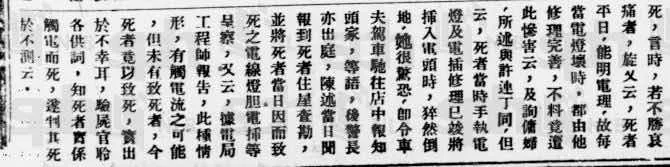 死，言時，若不勝哀
痛者，旋又云，死者
平日，能明電理，故每
當電燈壞時，都由他
修理完善，不料竟遭
此慘害云，及詢傭婦
，所述與許連丁同，但
云，死者當時手執電
燈及電插修理已竣將
插入電頭時，猝然倒
地，她很驚恐，即令車
夫駕車馳往店中報知
頭家，等語，後警長
亦出庭，陳述當日聞
報到死者住屋查勘，
並將死者當日因而致
死之電線燈胆電插等
呈察，又云，據電局
工程師報告，此種情
形，有觸電流之可能
，但未有致死者，今
死者竟以致死，實出
於不幸耳，驗屍官聆
各供詞，知死者實係
觸電而死，遂判其死
於不測云。